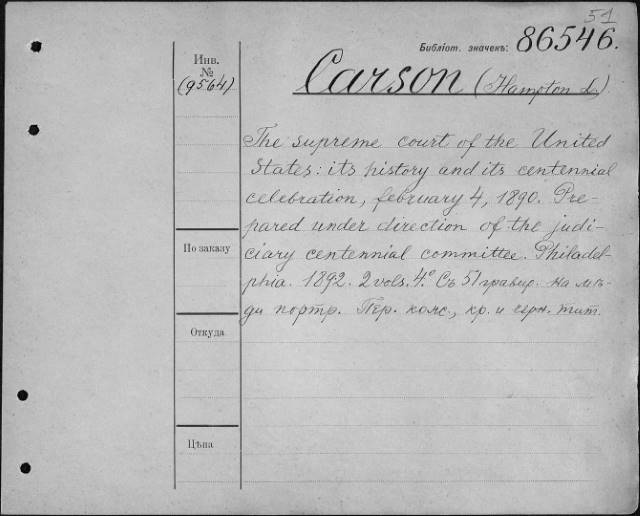 51
Библіот. значекъ: 86546.
Инв.
№
(9564)
Carson (Hampton L.)
The supreme court of the United
States: its history and its centennial
celebration, february 4, 1890. Pre-
pared under direction of the judi-
ciary centennial committee. Philadel-
phia. 1892. 2 vols. 4.° Съ 51 гравир. на мѣ-
ди портр. Пер. кожс., кр. и черн. тит.
По заказу
Откуда
Цѣна